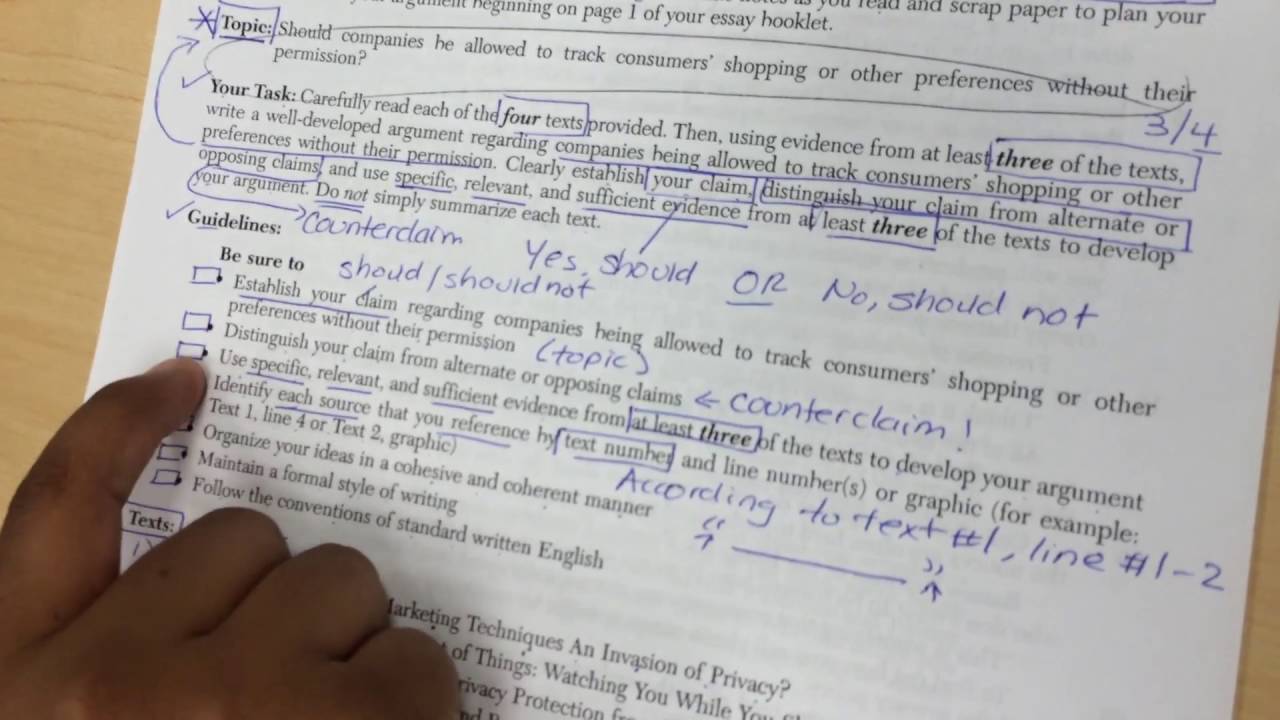 argument beginning on page 1 of your essay booklet.
as you read and scrap paper to plan your
Topic: Should companies be allowed to track consumers' shopping or other preferences without their
permission?
3/4
Your Task: Carefully read each of the four texts provided. Then, using evidence from at least three of the texts,
write a well-developed argument regarding companies being allowed to track consumers' shopping or other
preferences without their permission. Clearly establish your claim, distinguish your claim from alternate or
opposing claims, and use specific, relevant, and sufficient evidence from at least three of the texts to develop
your argument. Do not simply summarize each text.
Guidelines:
counterclaim
Yes, should OR No, should not
Be sure to
shoud/should not
Establish your claim regarding companies being allowed to track consumers' shopping or other
preferences without their permission
(topic)
Distinguish your claim from alternate or opposing claims
← counterclaim!
Use specific, relevant, and sufficient evidence from at least three of the texts to develop your argument
Identify each source that you reference by text number and line number(s) or graphic (for example:
Text 1, line 4 or Text 2, graphic)
According to text #1, line #1-2
Organize your ideas in a cohesive and coherent manner
“ ”
Maintain a formal style of writing
Follow the conventions of standard written English
Texts:
Marketing Techniques An Invasion of Privacy?
of Things: Watching You While You
Privacy Protection